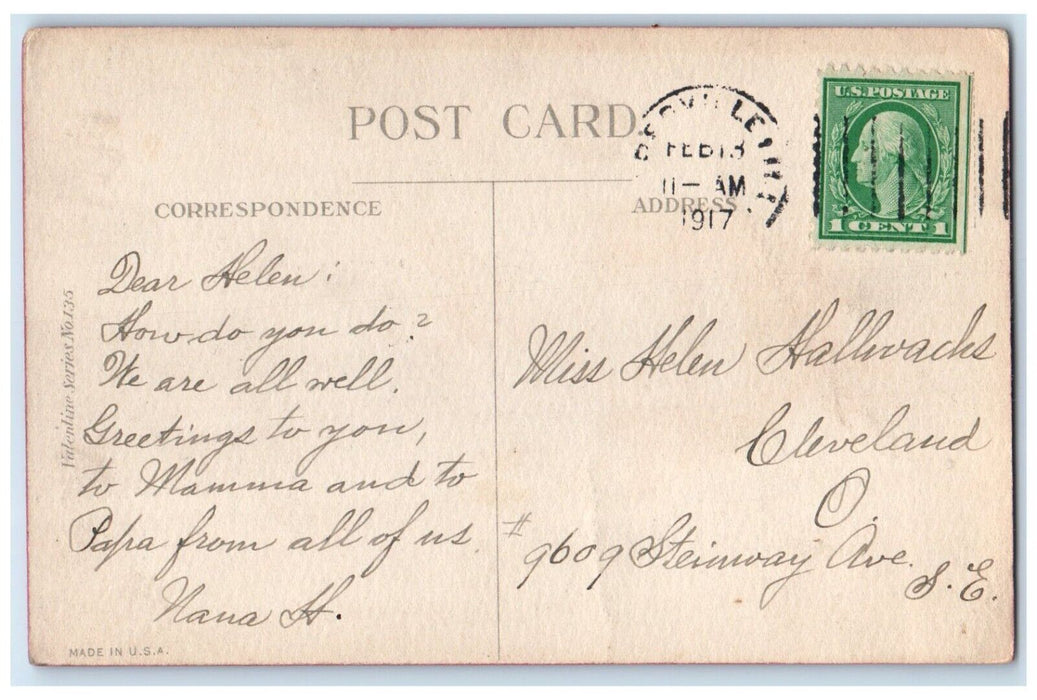 POST CARD
FEB 13
11 — AM
1917
U.S. POSTAGE
1 CENT 1
CORRESPONDENCE
ADDRESS
Dear Helen:
How do you do?
We are all well.
Greetings to you,
to Mamma and to
Papa from all of us.
Nana H.
Miss Helen Hallwachs
Cleveland
O.
# 9609 Steinway Ave.
S. E.
Valentine Series No. 135
MADE IN U.S.A.